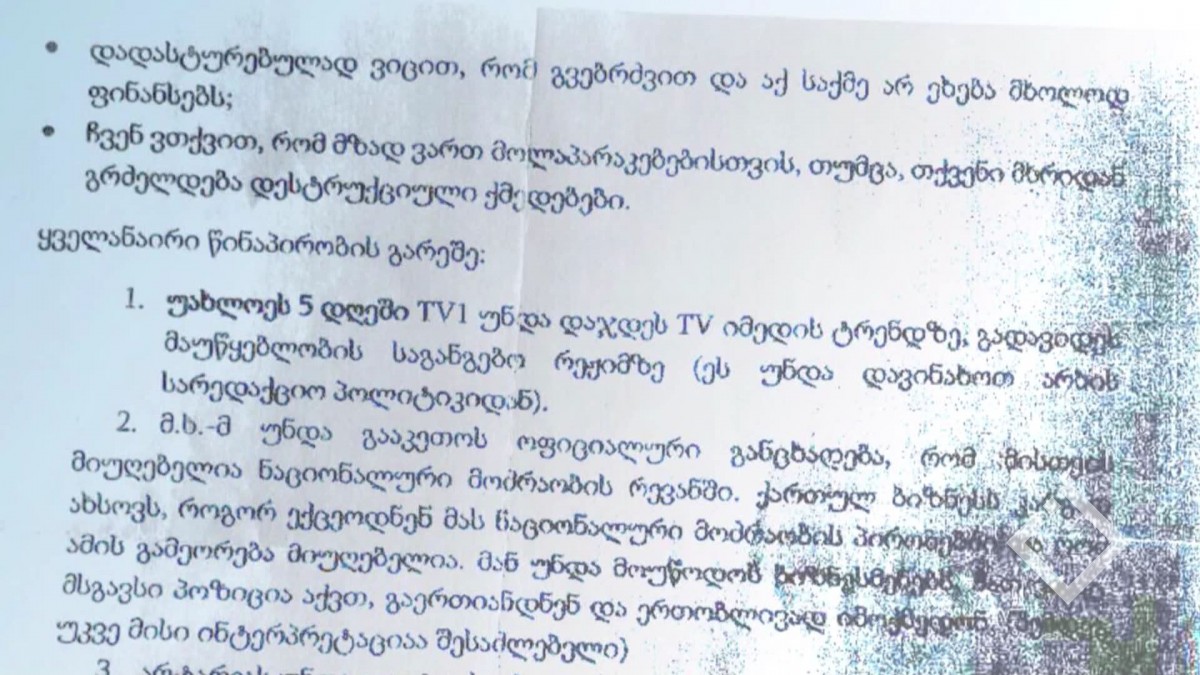 • დადასტურებულად ვიცით, რომ გვებრძვით და აქ საქმე არ ეხება მხოლოდ
ფინანსებს;
• ჩვენ ვთქვით, რომ მზად ვართ მოლაპარაკებებისთვის, თუმცა, თქვენი მხრიდან
გრძელდება დესტრუქციული ქმედებები.
ყველანაირი წინაპირობის გარეშე:
1. უახლოეს 5 დღეში TV1 უნდა დაჯდეს TV იმედის ტრენდზე, გადავიდეს
მაუწყებლობის საგანგებო რეჟიმზე (ეს უნდა დავინახოთ არხის
სარედაქციო პოლიტიკიდან).
2. მ.ხ.-მ უნდა გააკეთოს ოფიციალური განცხადება, რომ მისთვის
მიუღებელია ნაციონალური მოძრაობის რევანში. ქართულ ბიზნესს
ახსოვს, როგორ ექცეოდნენ მას ნაციონალური მოძრაობის პირობებში
ამის გამეორება მიუღებელია. მან უნდა მოუწოდოს ბიზნესმენებს,
მსგავსი პოზიცია აქვთ, გაერთიანდნენ და ერთობლივად იმოქმედონ.
უკვე მისი ინტერპრეტაციაა შესაძლებელი)
3.